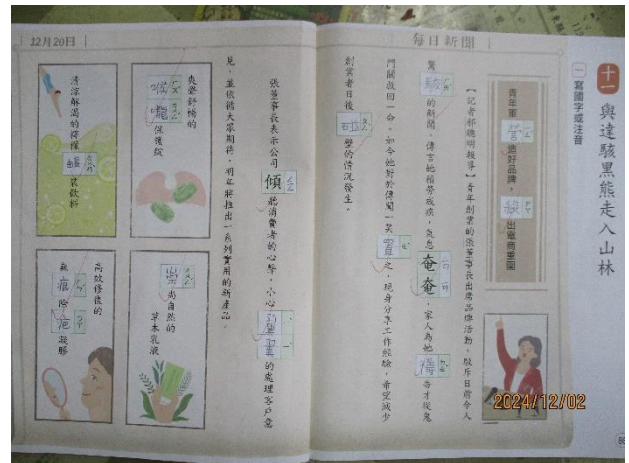 十一
與達駭黑熊走入山林
一 寫國字或注音
每日新聞
12月20日
青年軍營造好品牌，
殺出電商重圍
【記者郝聰明報導】青年創業的張董事長出席品牌活動，駁斥日前令人
驚駭的新聞，傳言她積勞成疾，氣息奄奄，家人為她禱告才從鬼
門關救回一命。如今她對於傳聞一笑置之，現身分享工作經驗，希望減少
創業者日後碰壁的情況發生。
張董事長表示公司傾聽消費者的心聲，小心翼翼的處理客戶意
見，並依循大家期待，明年將推出一系列實用的新產品。
爽聲舒暢的
喉嚨保護錠
清涼解渴的檸檬
罐裝飲料
崇尚自然的
草本乳液
高效修復的
無痕除疤凝膠
2024/12/02